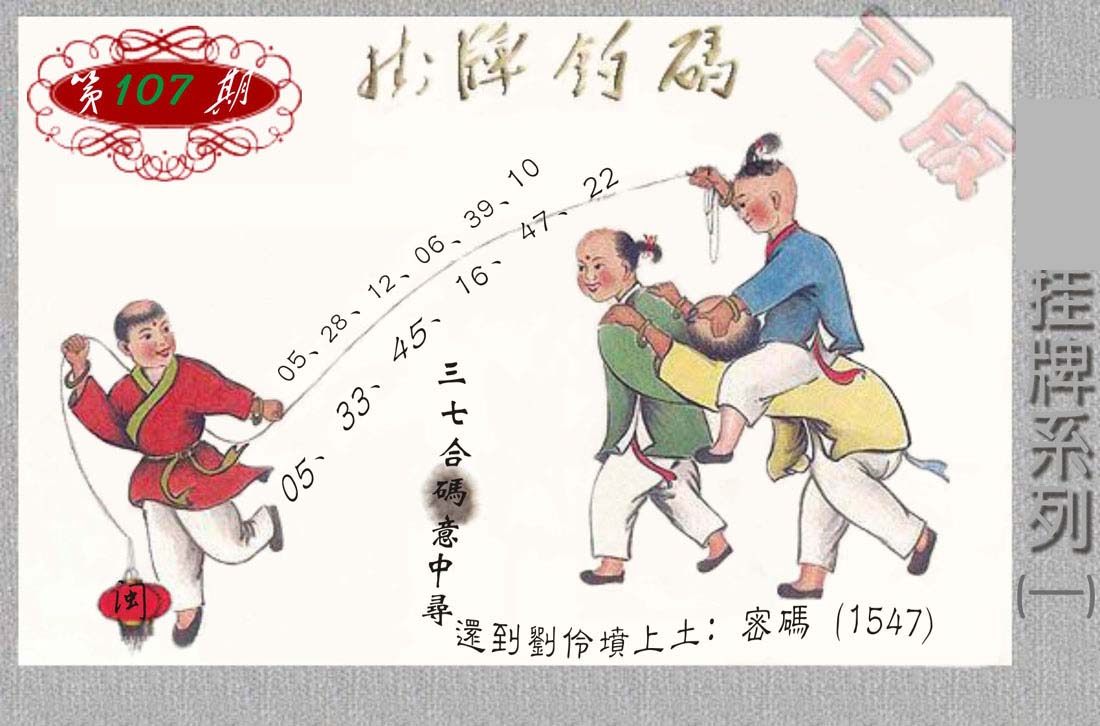 第107期
掛牌釣碼
正版
05、28、12、06、39、10
05、33、45、16、47、22
三七合碼意中尋
還到劉伶墳上土：密碼（1547）
闽
挂牌系列(一)